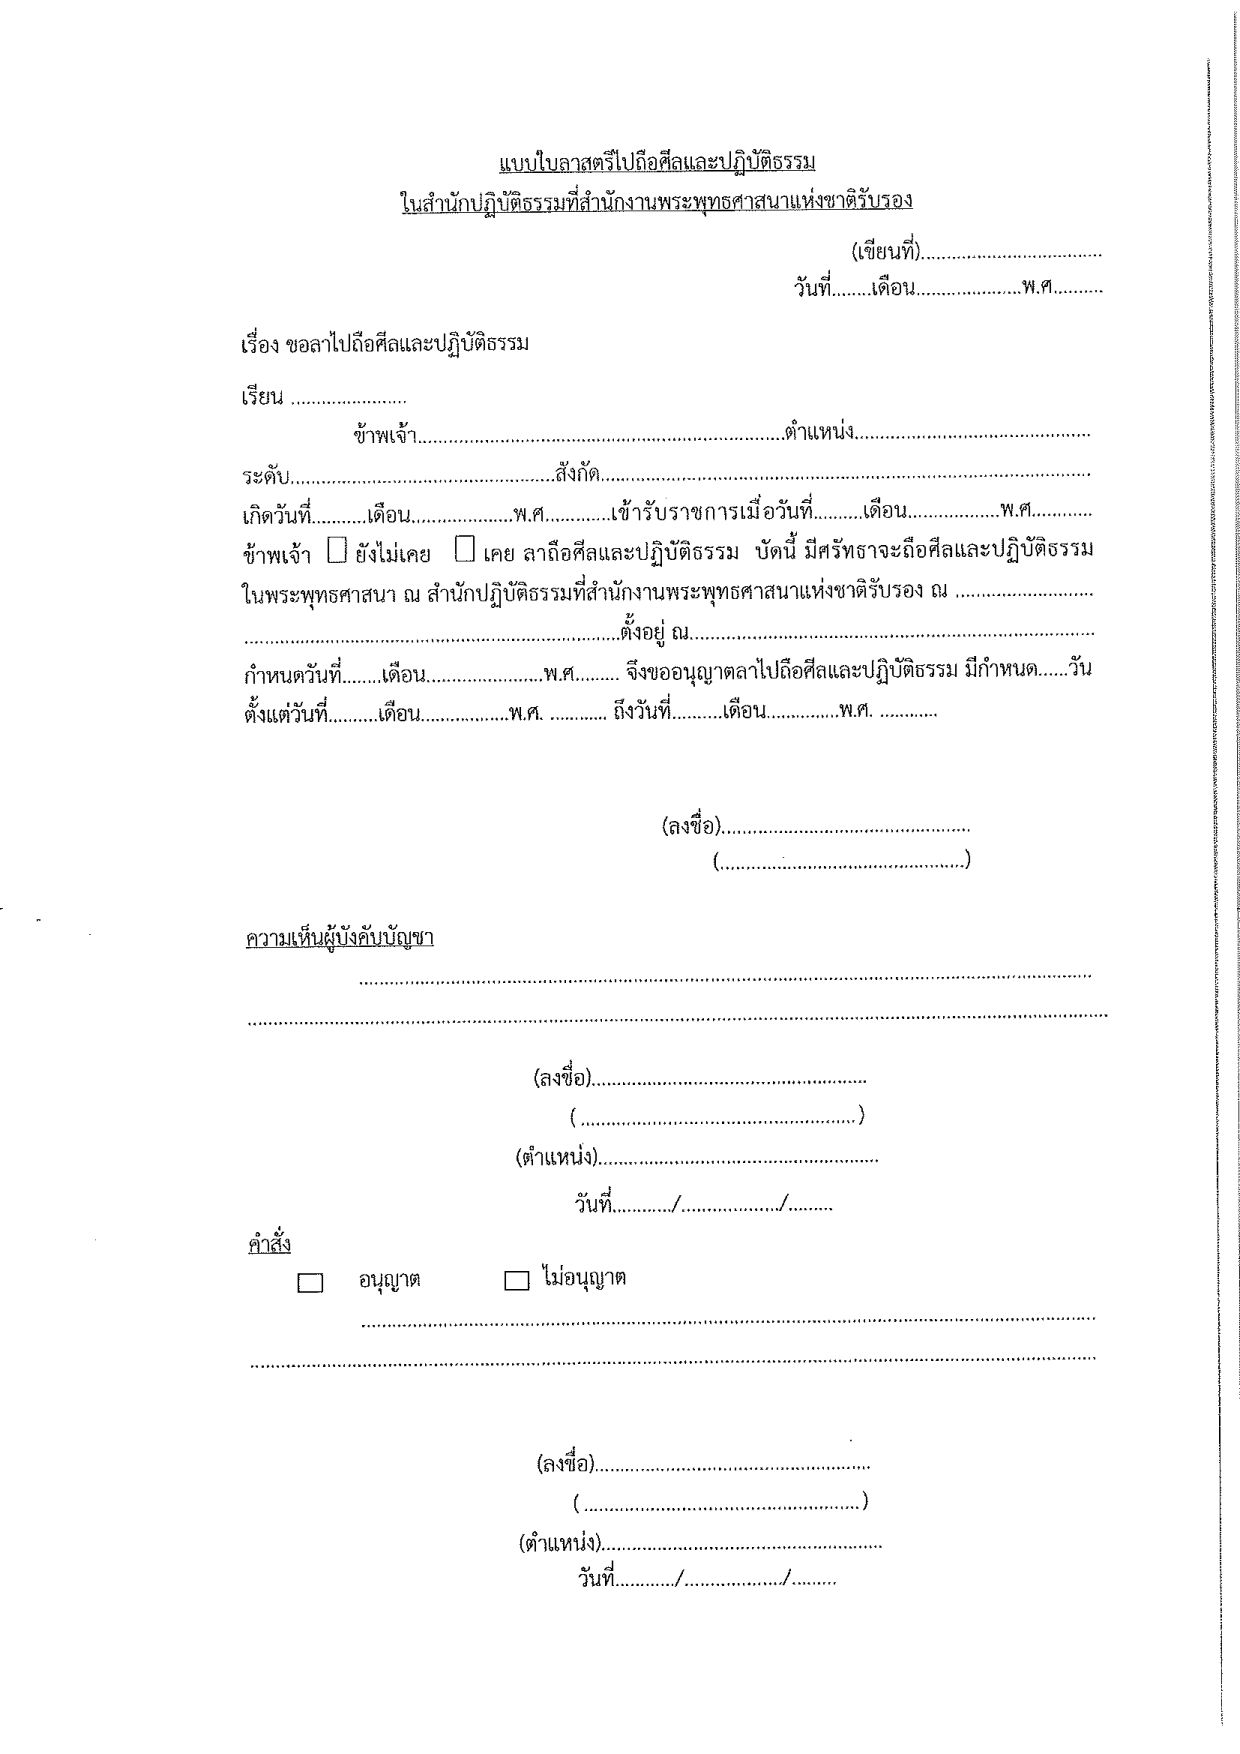 แบบใบลาสตรีไปถือศีลและปฏิบัติธรรม
ในสำนักปฏิบัติธรรมที่สำนักงานพระพุทธศาสนาแห่งชาติรับรอง
(เขียนที่)...................................
วันที่........เดือน.....................พ.ศ..........
เรื่อง ขอลาไปถือศีลและปฏิบัติธรรม
เรียน .......................
ข้าพเจ้า........................................................................ตำแหน่ง..............................................
ระดับ....................................................สังกัด................................................................................................
เกิดวันที่...........เดือน....................พ.ศ.............เข้ารับราชการเมื่อวันที่..........เดือน..................พ.ศ............
ข้าพเจ้า ☐ ยังไม่เคย ☐ เคย ลาถือศีลและปฏิบัติธรรม บัดนี้ มีศรัทธาจะถือศีลและปฏิบัติธรรม
ในพระพุทธศาสนา ณ สำนักปฏิบัติธรรมที่สำนักงานพระพุทธศาสนาแห่งชาติรับรอง ณ ...........................
..........................................................................ตั้งอยู่ ณ................................................................................
กำหนดวันที่........เดือน.......................พ.ศ......... จึงขออนุญาตลาไปถือศีลและปฏิบัติธรรม มีกำหนด......วัน
ตั้งแต่วันที่..........เดือน.................พ.ศ. ........... ถึงวันที่..........เดือน..............พ.ศ. ...........
(ลงชื่อ).................................................
(................................................)
ความเห็นผู้บังคับบัญชา
................................................................................................................................................
..........................................................................................................................................................................
(ลงชื่อ)......................................................
( ......................................................)
(ตำแหน่ง).......................................................
วันที่............/.................../.........
คำสั่ง
☐ อนุญาต ☐ ไม่อนุญาต
................................................................................................................................................
......................................................................................................................................................................
(ลงชื่อ)......................................................
( ......................................................)
(ตำแหน่ง).......................................................
วันที่............/.................../.........